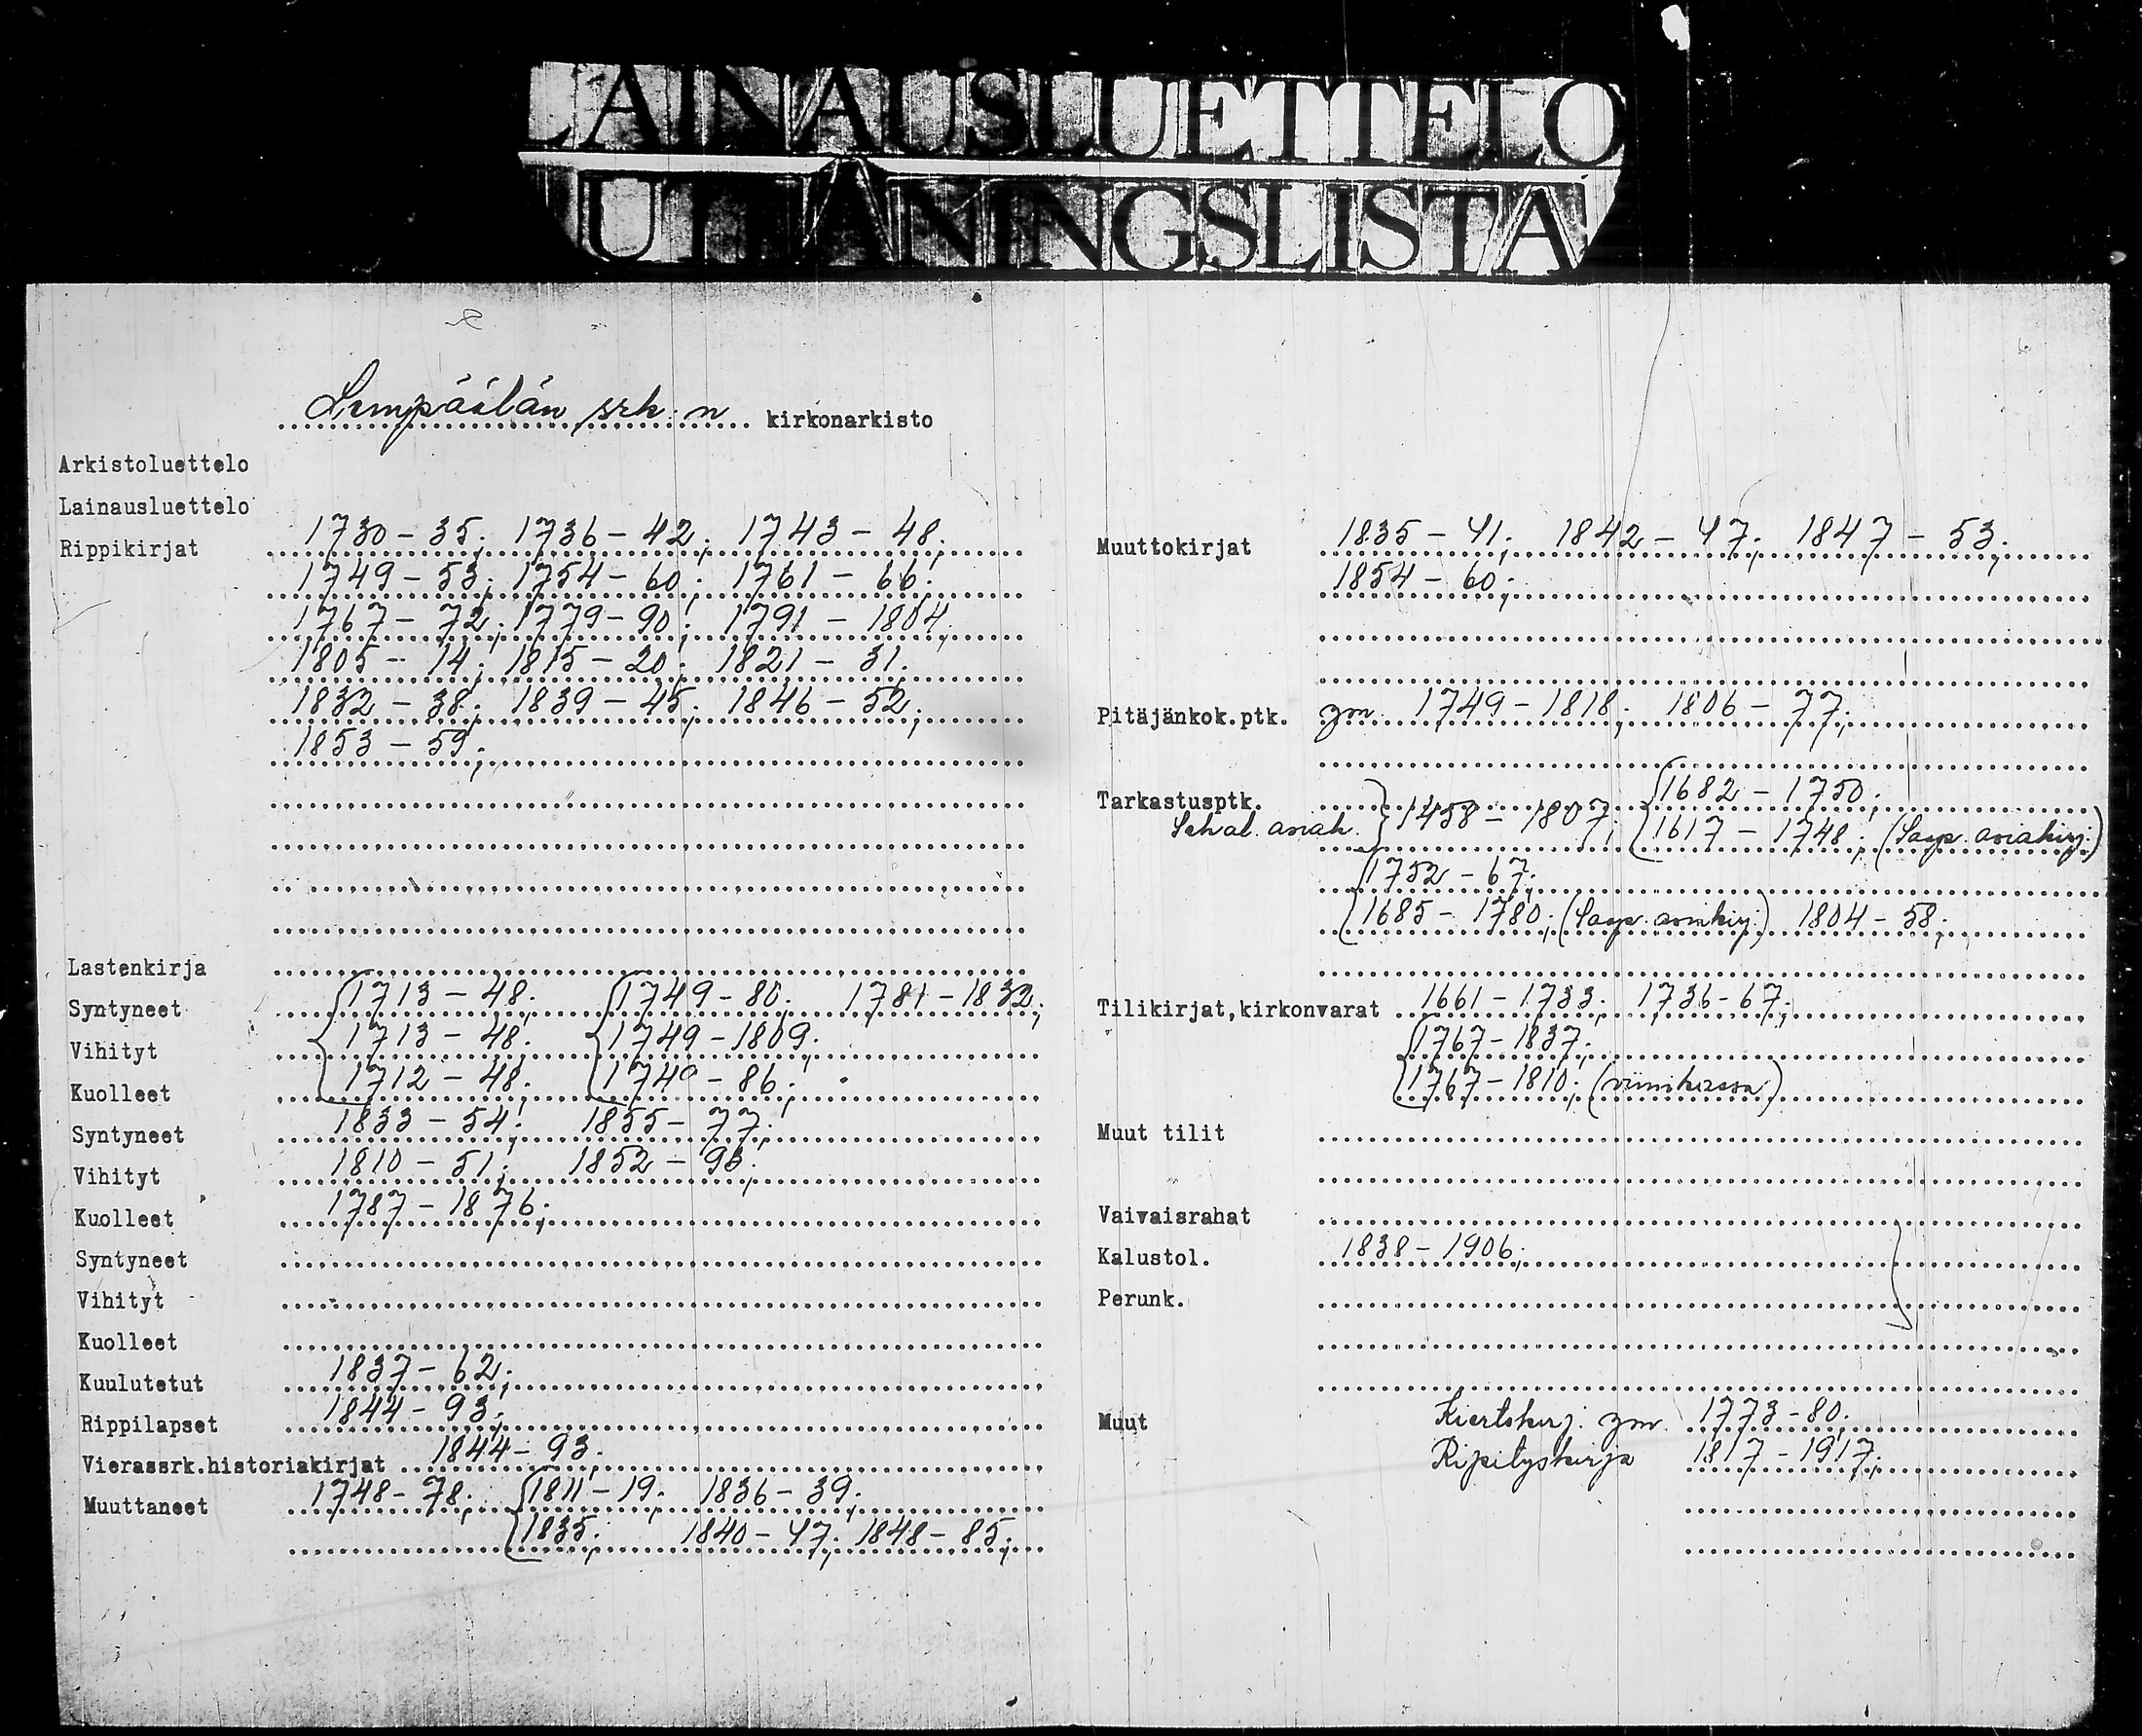 LAINAUSLUETTELO
UTLÅNINGSLISTA
Lempäälän srk:n kirkonarkisto
Arkistoluettelo
Lainausluettelo
Rippikirjat 1730-35; 1736-42; 1743-48;
1749-53; 1754-60; 1761-66;
1767-72; 1779-90; 1791-1804;
1805-14; 1815-20; 1821-31;
1832-38; 1839-45; 1846-52;
1853-59;
Lastenkirja
Syntyneet 1713-48; 1749-80; 1781-1832;
Vihityt 1713-48; 1749-1809;
Kuolleet 1712-48; 1749-86;
Syntyneet 1833-54; 1855-77;
Vihityt 1810-51; 1852-90;
Kuolleet 1787-1876;
Syntyneet
Vihityt
Kuolleet
Kuulutetut 1837-62;
Rippilapset 1844-93;
Vierassrk.historiakirjat 1844-93;
Muuttaneet 1748-78; 1811-19; 1836-39;
1835; 1840-47; 1848-85;
Muuttokirjat 1835-41; 1842-47; 1847-53;
1854-60;
Pitäjänkok.ptk. ym. 1749-1818; 1806-77;
Tarkastusptk. 1682-1750;
Sekal. asiak. 1458-1807; 1617-1748; (Saap. asiakirj.)
1752-67;
1685-1780; (Saap. asiakirj.) 1804-58;
Tilikirjat,kirkonvarat 1661-1733; 1736-67;
1767-1837;
1767-1810; (viinikassa)
Muut tilit
Vaivaisrahat
Kalustol. 1838-1906;
Perunk.
Muut Kiertokirj. ym. 1773-80;
Ripityskirja 1817-1917;